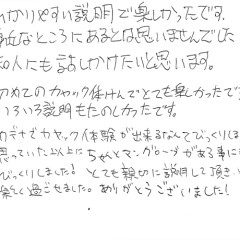 わかりやすい説明で楽しかったです.
近なところにあるとは思いませんでした
知人にも話しかけたいと思います。
アカヒのカヤック体けんでとても楽しかったです
いろいろ説明もたのしかったです。
カヌナでカヤック体験が出来るなんてびっくりしま
思っていた以上にちゃんとマングローブがある事に
びっくりしました! とても親切に説明して頂き、
楽しく過ごせました。ありがとうございました!